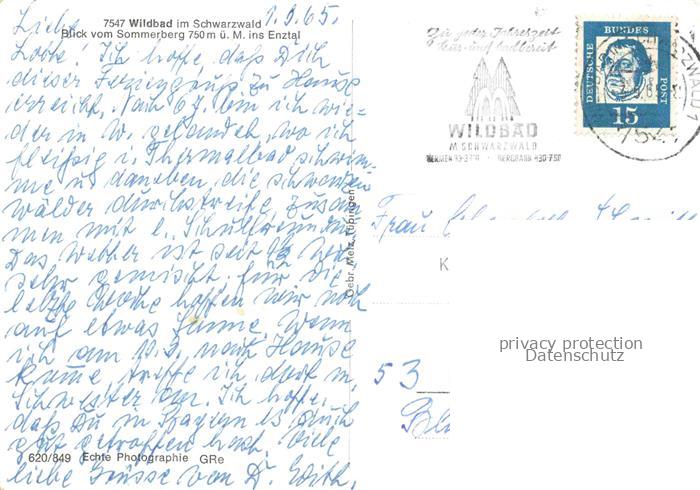 7547 Wildbad im Schwarzwald
Blick vom Sommerberg 750 m ü. M. ins Enztal
1.9.65.
Liebe
Lotte! Ich hoffe, daß Dich
dieser Feriengruß zu Hause
erreicht. Am 6. bin ich wie-
der in W. gelandet, wo ich
fleißig i. Thermalbad schwim-
me u. daneben die schwarzen
wälder durchstreife zusam
men mit e. Schulfreundin
Das Wetter ist seit
sehr gemischt. für die
letzte Woche hoffen wir noch
auf etwas Sonne. Wenn
ich am 10.9. nach Hause
komme treffe ich dort m.
Schwester an. Ich hoffe,
daß Du in Bayern es auch
gut getroffen hast. Viele
liebe Grüsse von D. Edith.
620/849 Echte Photographie GRe
Gebr. Metz, Tübingen
Zu jeder Jahreszeit
kur- und badbereit
WILDBAD
IM SCHWARZWALD
BERGBAHN 430-750
DEUTSCHE BUNDES POST
15
7547
Frau
K
53
Bl
privacy protection
Datenschutz